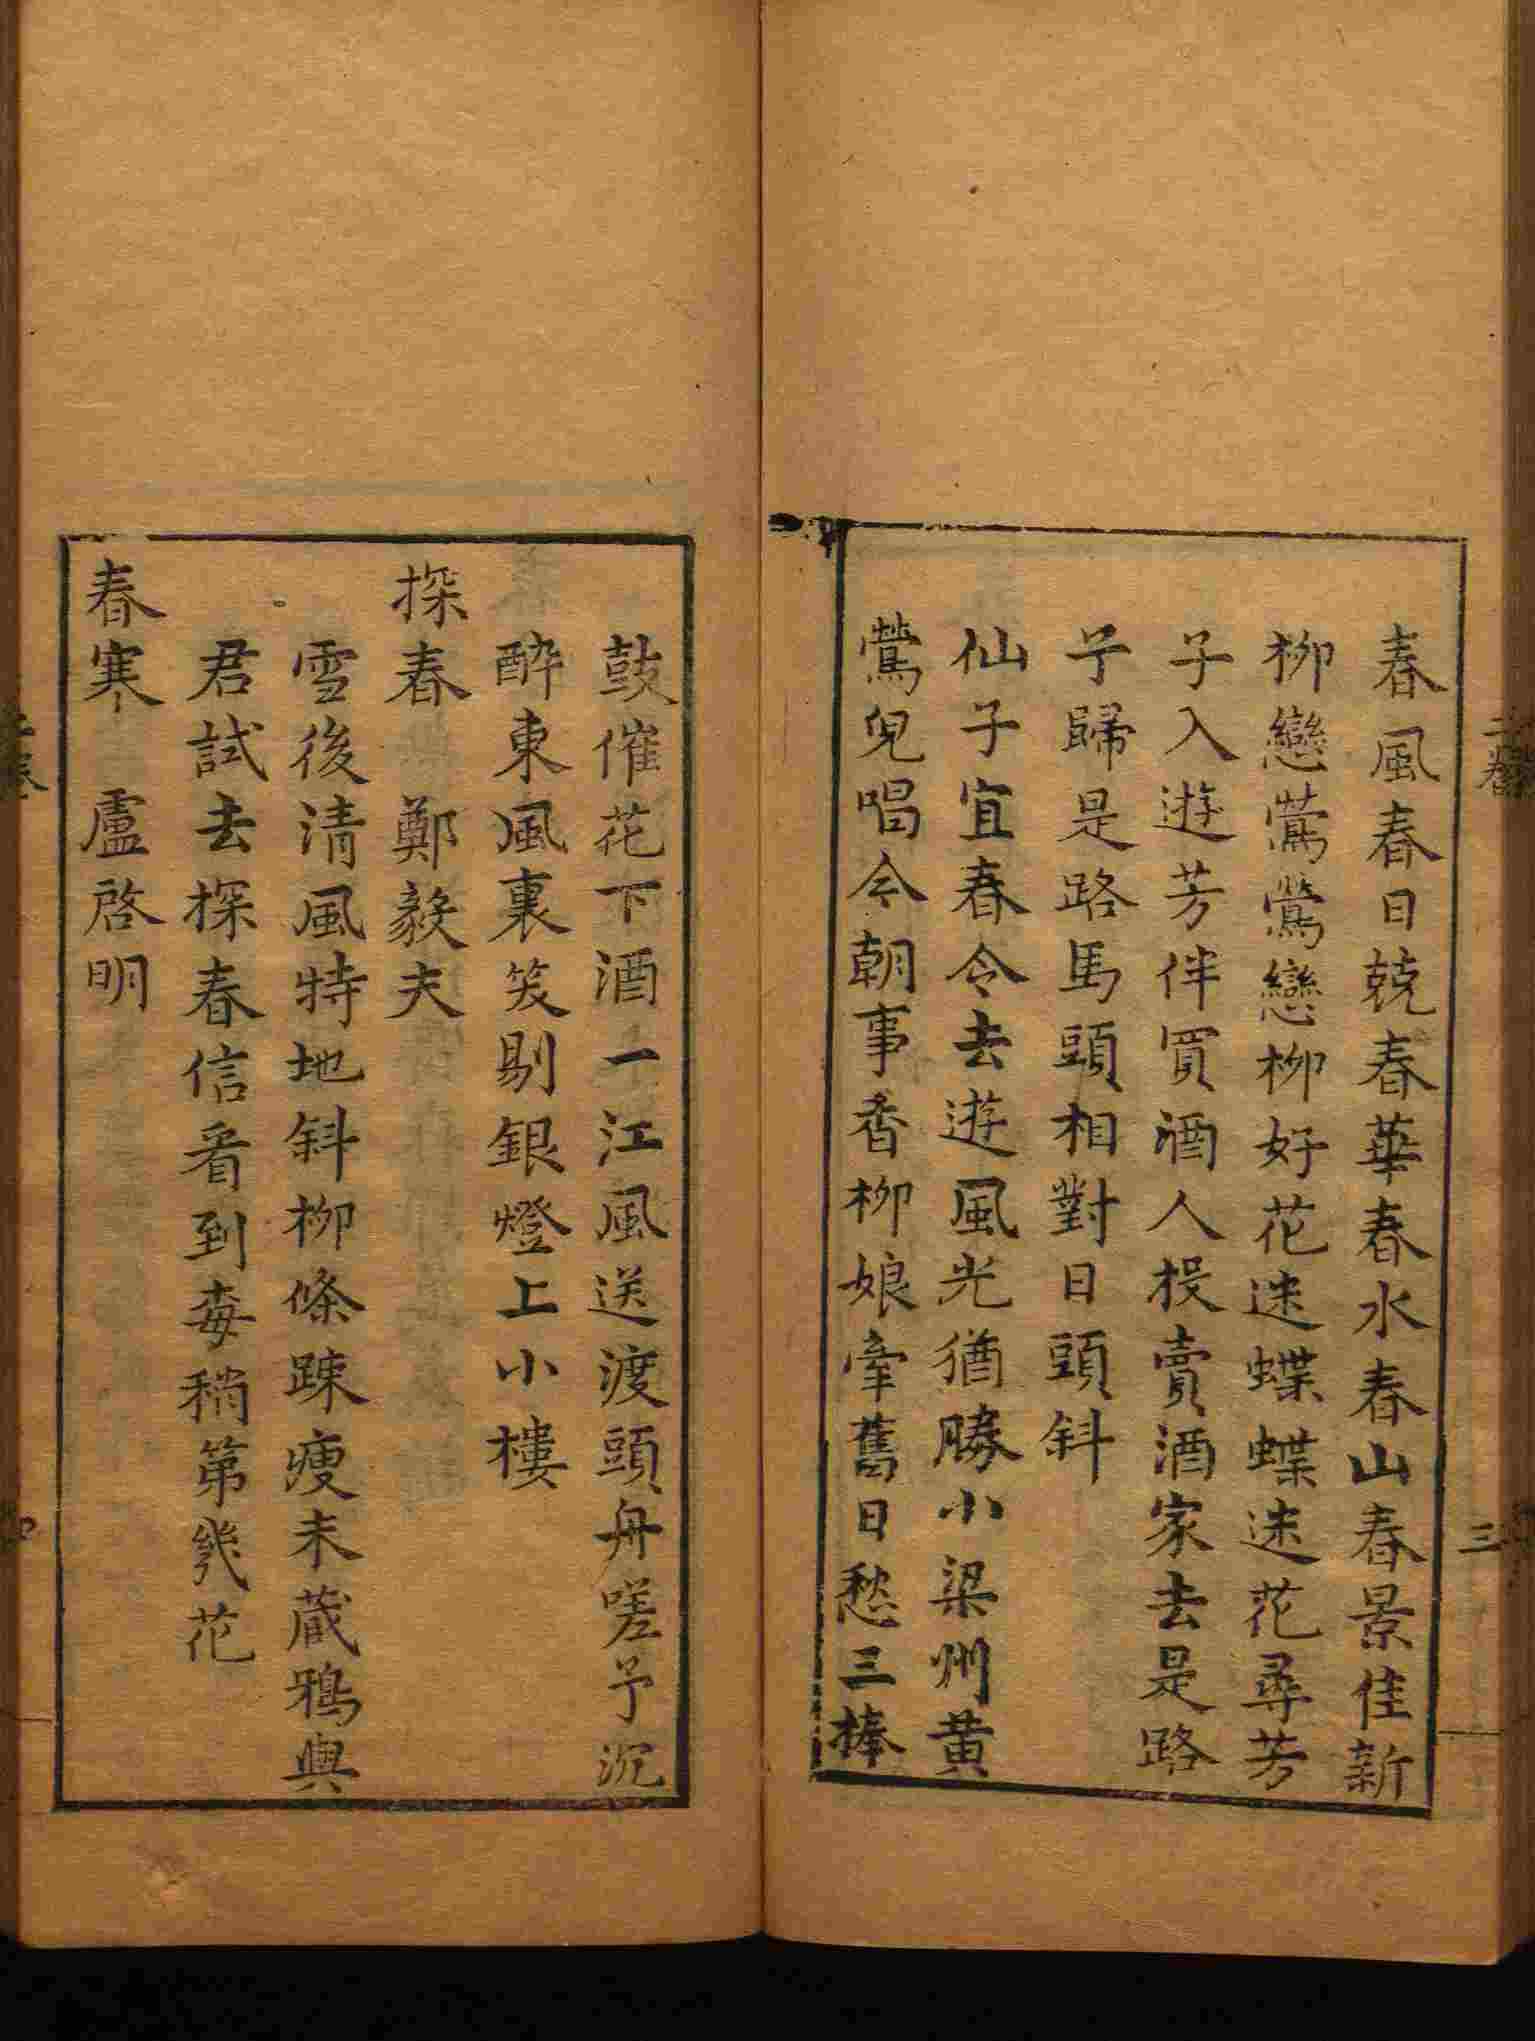 春風春日兢春華春水春山春景佳新
柳戀鶯鶯戀柳好花迷蝶蝶迷花尋芳
子入遊芳伴買酒人投賣酒家去是路
予歸是路馬頭相對日頭斜
仙子宜春令去遊風光猶勝小梁州黄
鶯兒唱今朝事香柳娘牽舊日愁三棒
鼓催花下酒一江風送渡頭舟嗟予沉
醉東風裏笑剔銀燈上小樓
探春 鄭毅夫
雪後清風特地斜柳條踈瘦未蔵鴉與
君試去探春信看到毎稍第幾花
春寒 盧啓明
三